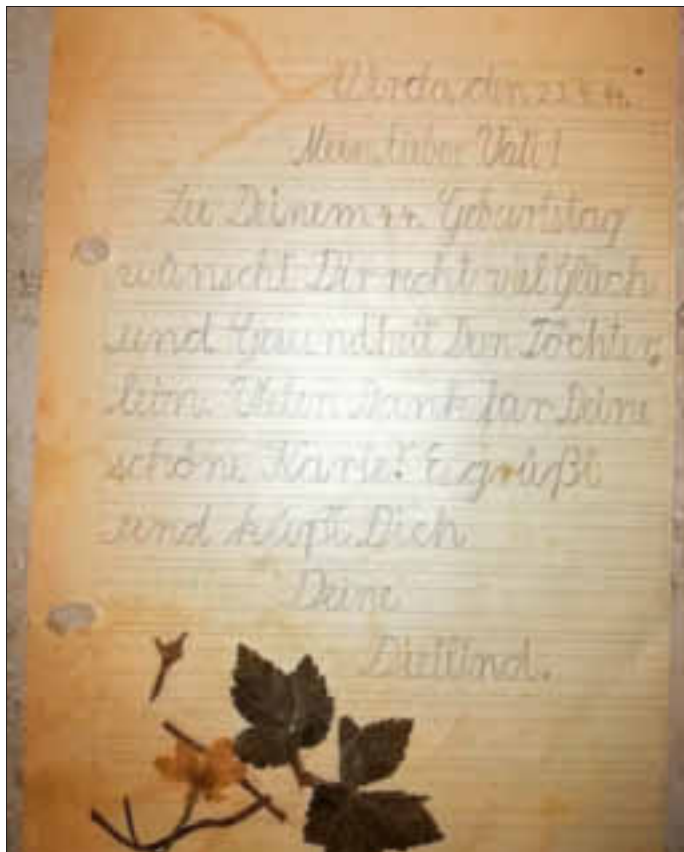 Werda, den 23.5.44.
Mein lieber Vati!
Zu Deinem 44. Geburtstag
wünscht Dir recht viel Glück
und Gesundheit Dein Töchter,
lein. Vielen Dank für Deine
schöne Karte! Es grüßt
und küßt Dich
Deine
Dietlind.